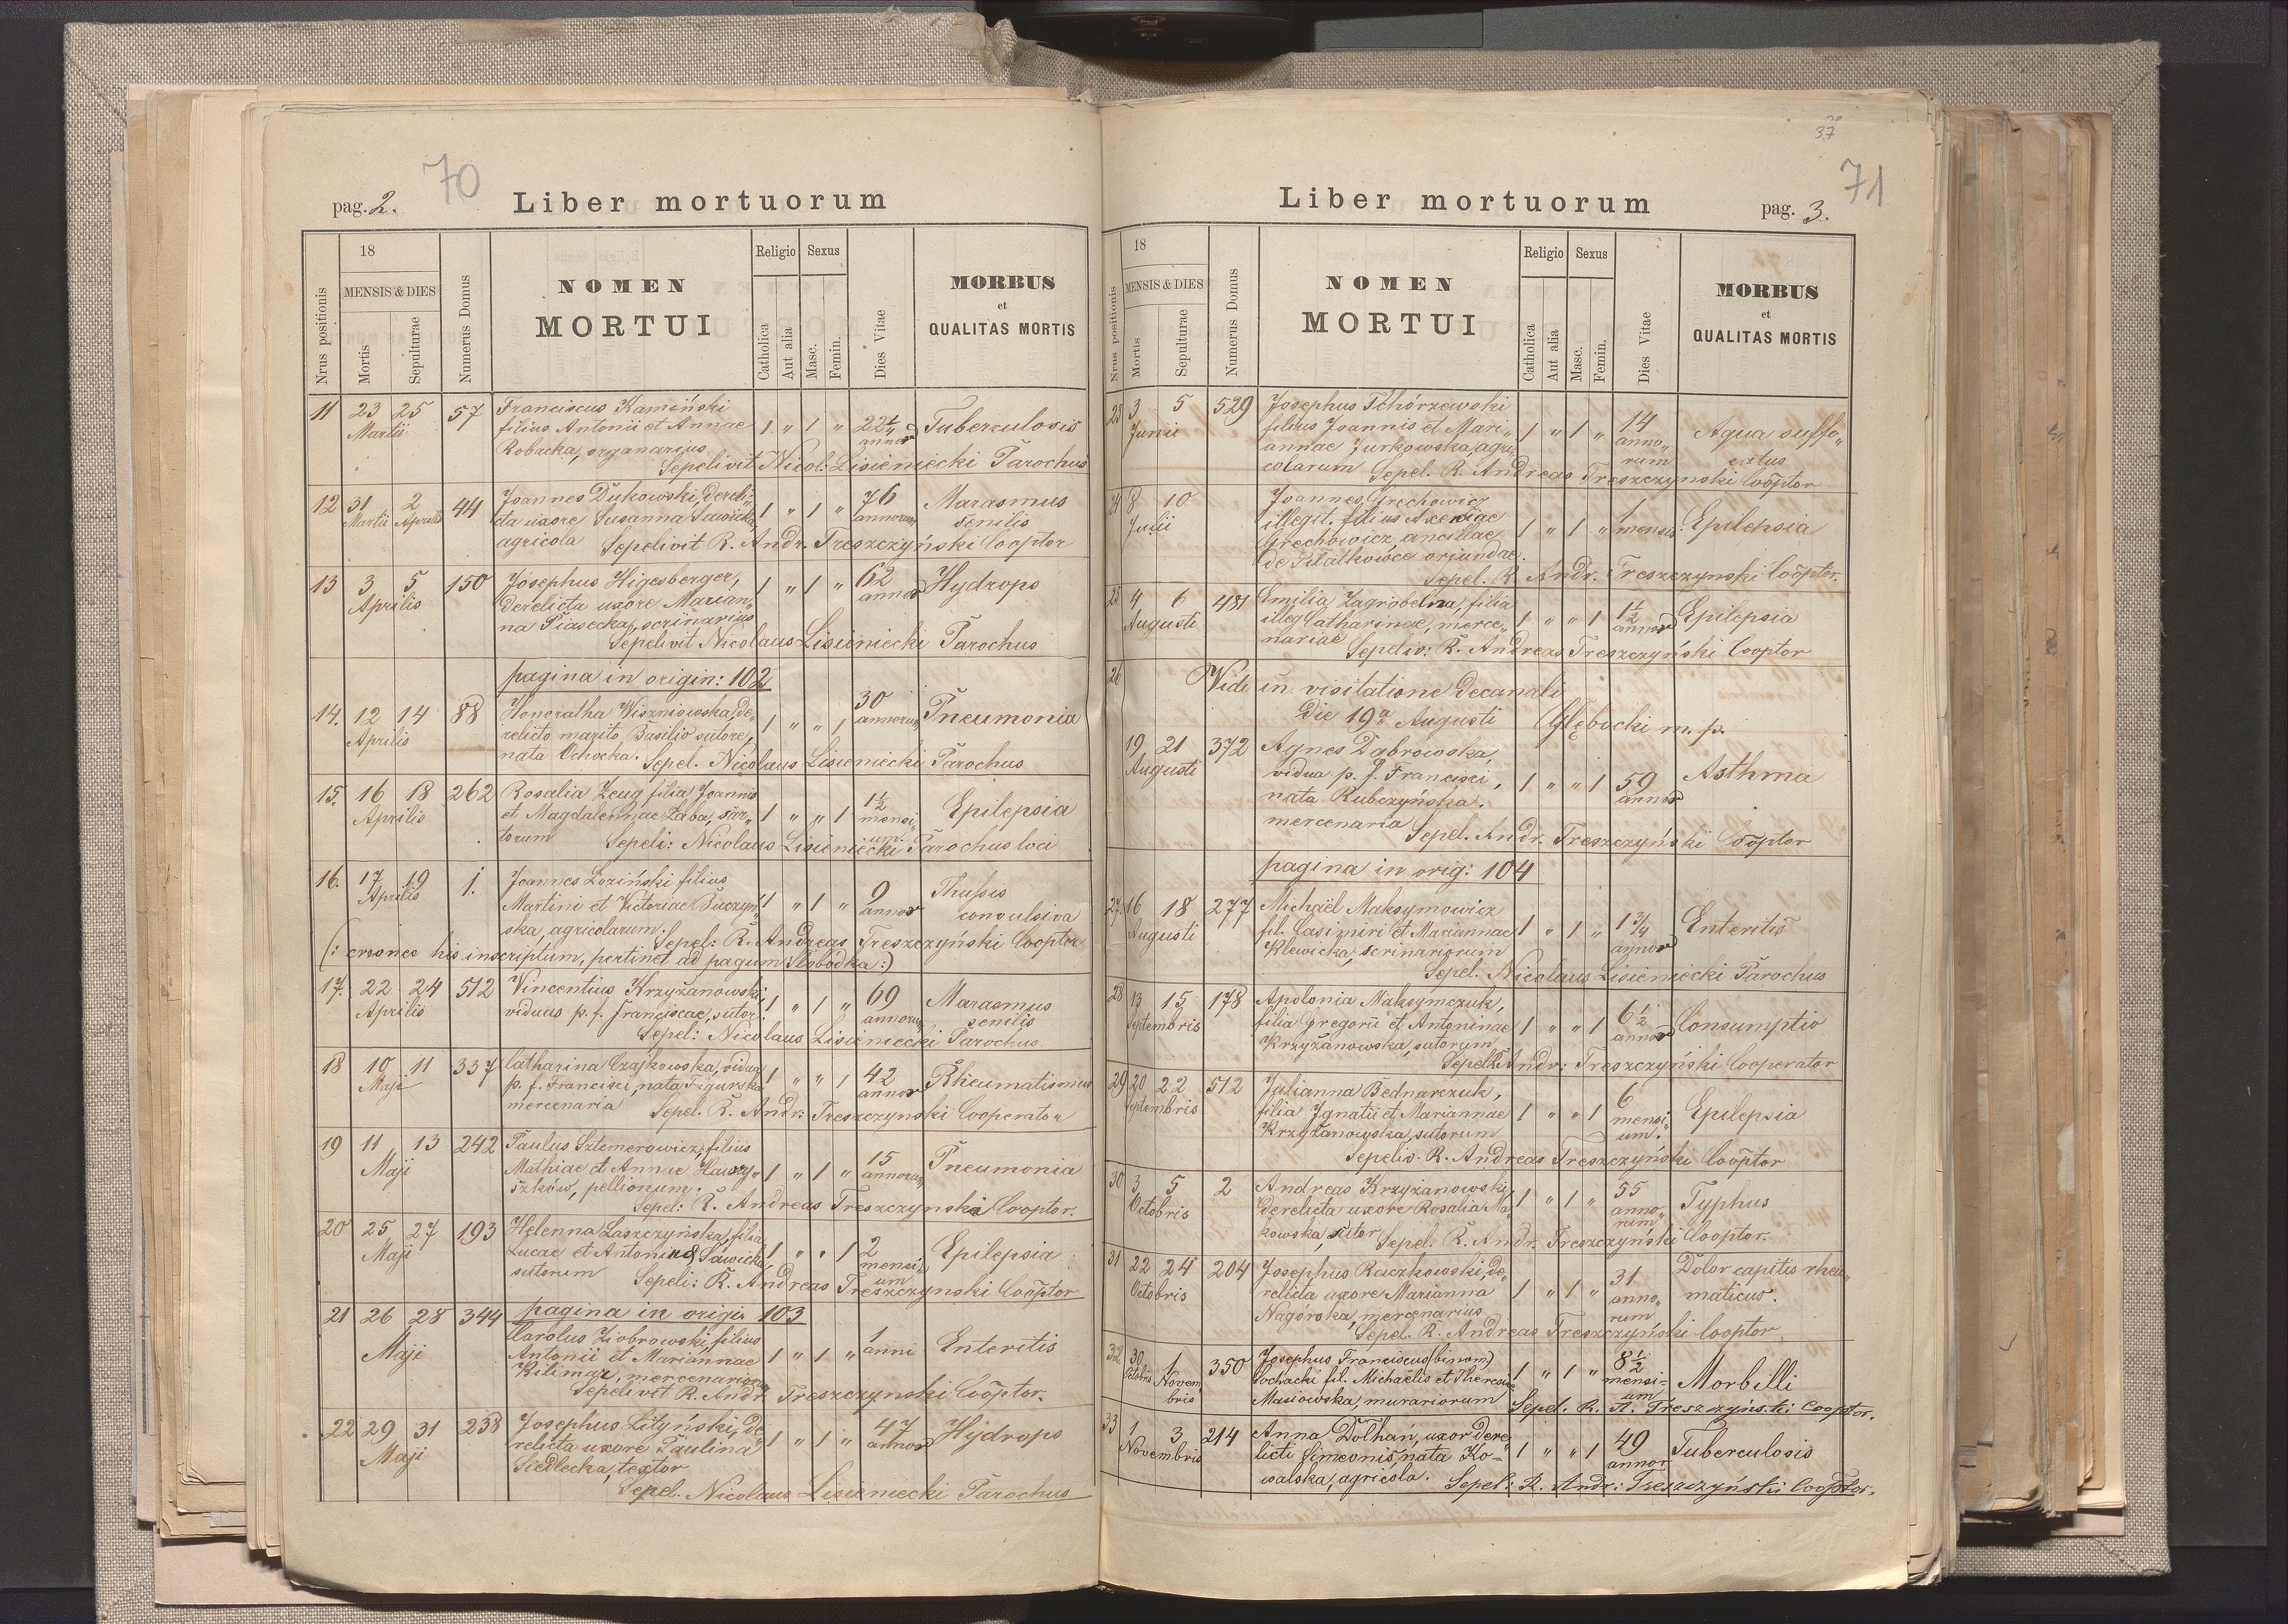 70
pag. 2.
Liber mortuorum
Nrus positionis
18
MENSIS & DIES
Mortis
Sepulturae
Numerus Domus
NOMEN
MORTUI
Religio
Catholica
Aut alia
Sexus
Masc.
Femin.
Dies Vitae
MORBUS
et
QUALITAS MORTIS
11 23 25 57 Franciscus Kamiński
Martii filius Antonii et Annae 1 " 1 " annor Tuberculosis
Robacka, organarius
Sepelivit Nicol. Lisieniecki Parochus
12 31 2 44 Joannes Dukowski, dereli- 76 Marasmus
Martii Aprilis cta uxore Susanna Sawicka 1 " 1 " annorum senilis
agricola Sepelivit R. Andr. Treszczyński Cooptor
13 3 5 150 Josephus Higesberger, 1 " 1 " 62 Hydrops
Aprilis derelicta uxore Marian„ annor
na Piasecka, scrinarius
Sepelivit Nicolaus Lisieniecki Parochus
pagina in origin: 102
14. 12 14 88 Honoratha Wiszniowska, de„ 1 " " 1 30 annorum Pneumonia
Aprilis relicto marito Basilio sutore,
nata Ochocka. Sepel. Nicolaus Lisieniecki Parochus
15. 16 18 262 Rosalia Zeug filia Joannis 1½
Aprilis et Magdalennae Żaba, sar„ 1 " " 1 mensi„ Epilepsia
torum um. Sepeli: Nicolaus Lisieniecki Parochus loci
16. 17 19 1. Joannes Łoziński filius 9 Thussis
Aprilis Martini et Victoriae Buczyń„ 1 " 1 " annor convulsiva
ska, agricolarum. Sepel: R. Andreas Treszczyński Cooptor
(: erronee hic inscriptum, pertinet ad pagum Słobódka :)
17. 22 24 512 Vincentius Krzyżanowski 69 Marasmus
Aprilis viduus p. f. Franciscae, sutor. 1 " 1 " annorum senilis
Sepel: Nicolaus Lisieniecki Parochus
18 10 11 337 Catharina Czajkowska, vidua 42 Rheumatismus
Maji p. f. Francisci, nata Figurska 1 " " 1 annor
mercenaria Sepel. R. Andr: Treszczynski Cooperator
19 11 13 242 Paulus Sztemerowicz, filius 15
Maji Mathiae et Annae 1 " 1 " annorum Pneumonia
szków, pellionum.
Sepel: R. Andreas Treszczynski Cooptor.
20 25 27 193 Helenna Laszczyńska, filia
Maji Lucae et Antoninae Sawicka, 1 " " 1 2 mensi„ Epilepsia
sutorum um Sepeli: R. Andreas Treszczynski Cooptor
21 26 28 344 pagina in origin 103
Carolus Ziobrowski, filius 1
Maji Antonii et Mariannae 1 " 1 " anni Enteritis
Kilimar, mercenariorum
Sepelivit R. Andr Treszczynski Cooptor.
22 29 31 238 Josephus Lityński, de„ 47
Maji relicta uxore Paulina 1 " 1 " annor Hydrops
Siedlecka, textor
Sepel. Nicolaus Lisieniecki Parochus
37
71
Liber mortuorum
pag. 3.
Nrus positionis
18
MENSIS & DIES
Mortis
Sepulturae
Numerus Domus
NOMEN
MORTUI
Religio
Catholica
Aut alia
Sexus
Masc.
Femin.
Dies Vitae
MORBUS
et
QUALITAS MORTIS
23 3 5 529 Josephus Tchórzewski 14
Junii filius Joannis et Mari„ 1 " 1 " anno„ Aqua suffo„
annae Jurkowska, agri„ rum catus
colarum Sepel. R. Andreas Treszczynski Cooptor
8 10 Joannes Grechowicz 1
Julii illegit. filius Axeniae 1 " 1 " mensis Epilepsia
Grechowicz ancillae
de Piłatkowce oriundae.
Sepel. R. Andr. Treszczynski Cooptor.
25 4 6 481 Emilia Zagrobelna, filia
Augusti illeg Catharinae, merce„ 1 " " 1 1½ annor Epilepsia
nariae Sepeliv: R. Andreas Treszczyński Cooptor
26 Vidi in visitatione decanali
Die 19a Augusti Głębocki m. p.
19 21 372 Agnes Dąbrowska,
Augusti vidua p. f. Francisci, 1 " " 1 59 annor Asthma
nata Rubczyńska.
mercenaria Sepel. Andr. Treszczyński Cooptor
pagina in orig: 104
27. 16 18 277 Michaël Maksymowicz
Augusti fil. Casimiri et Mariannae 1 " 1 " 1¾ annor Enteritis
Klewicka, scrinariorum
Sepel. Nicolaus Lisieniecki Parochus
28 13 15 178 Apolonia Maksymczuk, 6½
Septembris filia Gregorii et Antoninae 1 " " 1 annor Consumptio
Krzyżanowska, sutorum
Sepel. R. Andr: Treszczyński Cooperator
29 20 22 512 Julianna Bednarczuk, 6
Septembris filia Ignatii et Mariannae 1 " " 1 mensi„ Epilepsia
Krzyżanowska, sutorum um.
Sepeliv. R. Andreas Treszczyński Cooptor
30 3 5 2 Andreas Krzyżanowski, 55
Octobris derelicta uxore Rosalia Ma„ 1 " 1 " anno„ Typhus
kowska, sutor rum Sepel. R. Andr. Treszczyński Cooptor.
31 22 24 204 Josephus Raczkowski, de„ 31 Dolor capitis rheu„
Octobris relicta uxore Marianna 1 " 1 " anno„ maticus.
Nagórska, mercenarius rum
Sepel. R. Andreas Treszczyński Cooptor
32 30 1 350 Josephus Franciscus (binom) 8½
Octobris Novem Cochacki fil. Michaëlis et Theresiae 1 " 1 " mensi- Morbilli
bris Masiowska, murariorum um Sepel. R. A. Treszczyński Cooptor.
33 1 3 214 Anna Dołhań, uxor dere 49
Novembris licti Simeonis, nata Ko- 1 " " 1 annor Tuberculosis
walska, agricola. Sepel: R. Andr: Treszczyński Cooptor.